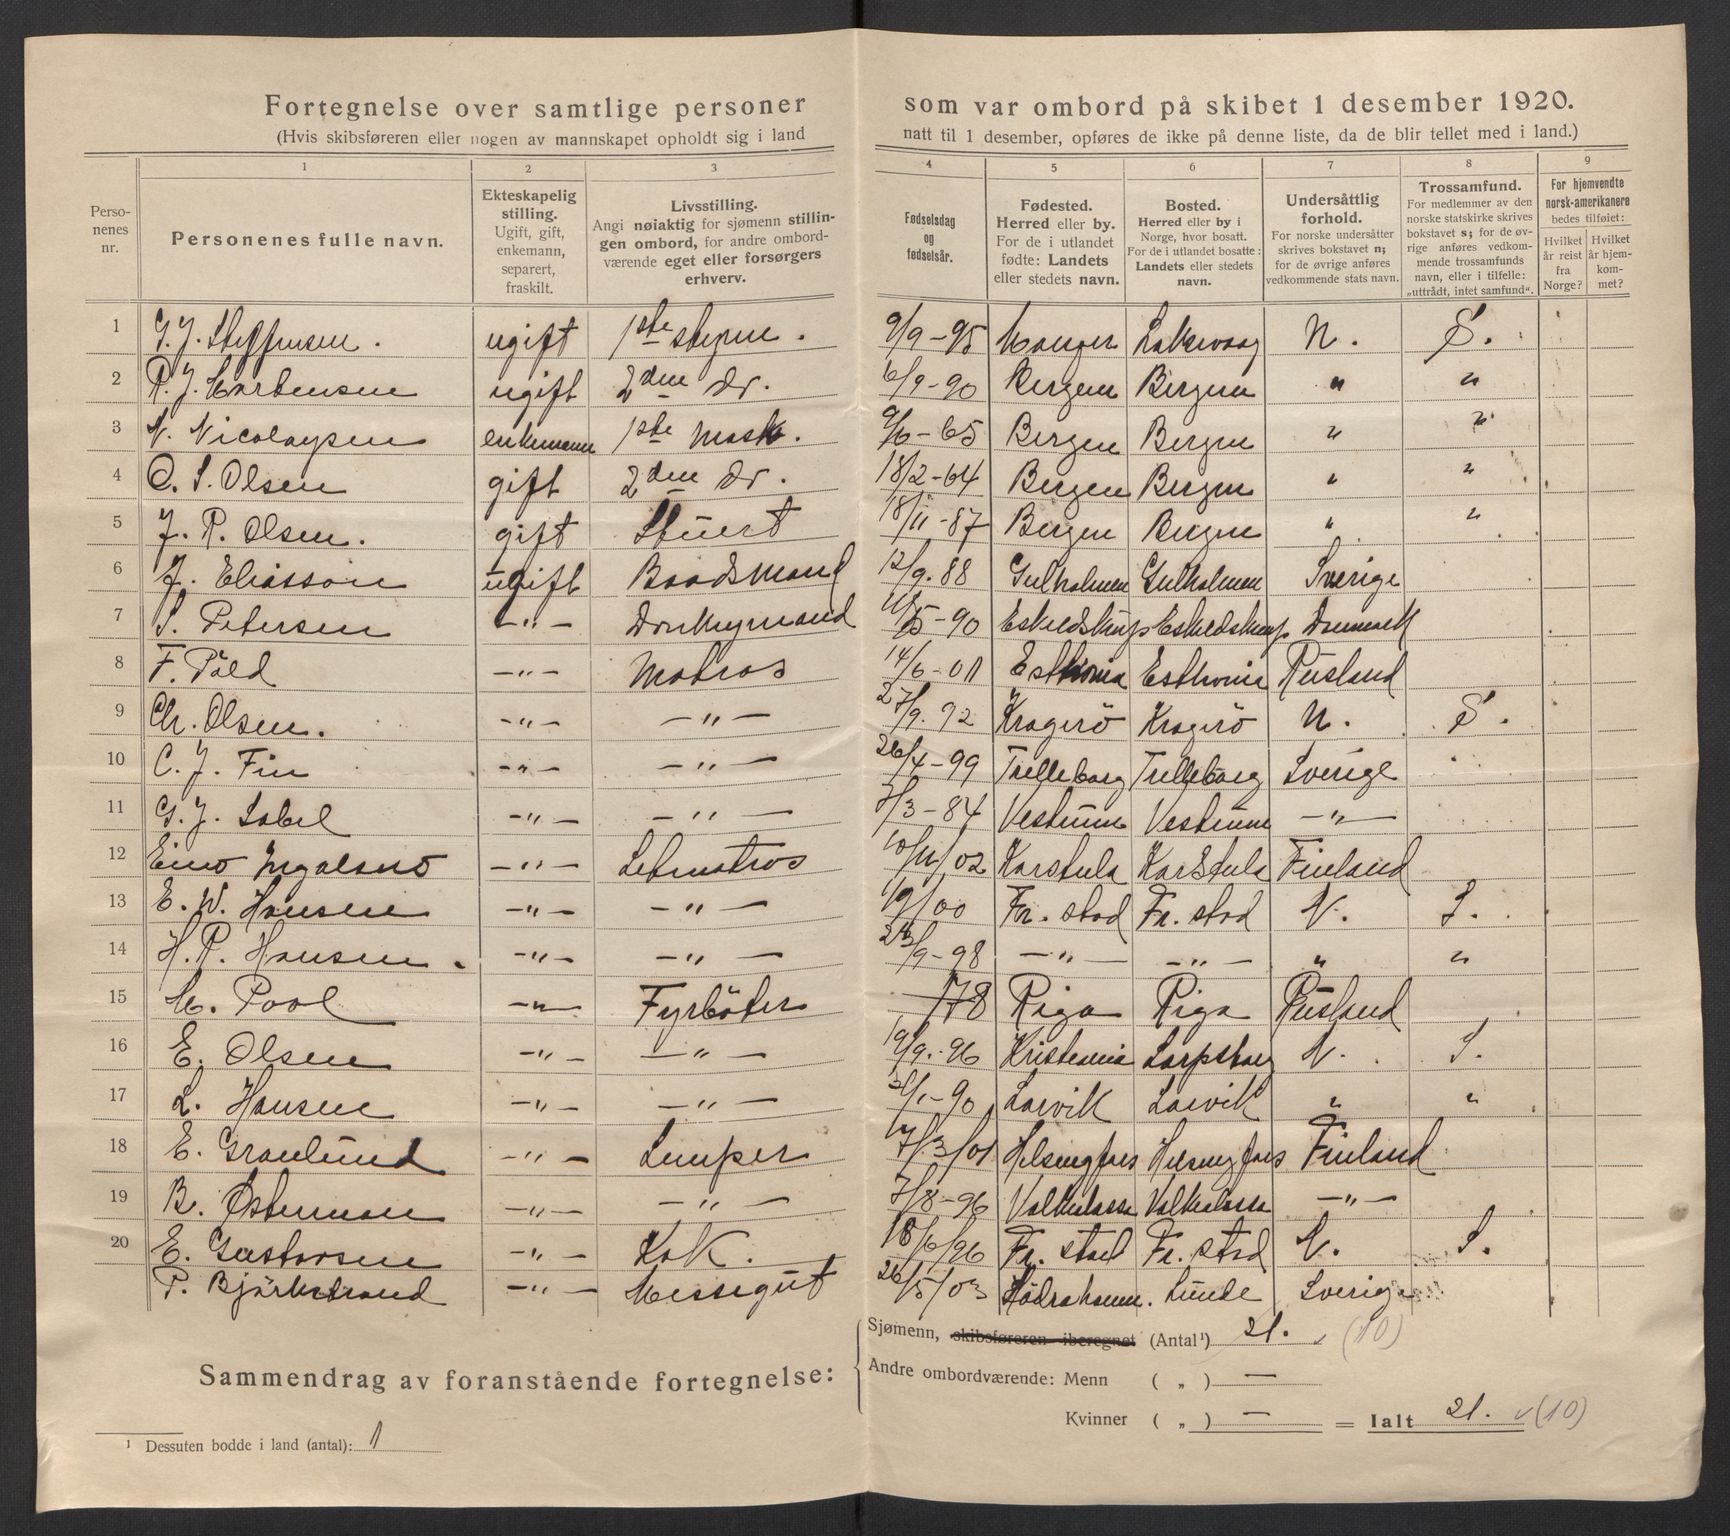 Fortegnelse over samtlige personer som var ombord på skibet 1 desember 1920.
(Hvis skibsføreren eller nogen av mannskapet opholdt sig i land natt til 1 desember, opføres de ikke på denne liste, da de blir tellet med i land.)
1 2 3 4 5 6 7 8 9
Personenes nr.
Personenes fulle navn.
Ekteskapelig stilling. Ugift, gift, enkemann, separert, fraskilt.
Livsstilling. Angi nøiaktig for sjømenn stillingen ombord, for andre ombordværende eget eller forsørgers erhverv.
Fødselsdag og fødselsår.
Fødested. Herred eller by. For de i utlandet fødte: Landets eller stedets navn.
Bosted. Herred eller by i Norge, hvor bosatt. For de i utlandet bosatte: Landets eller stedets navn.
Undersåttlig forhold. For norske undersåtter skrives bokstavet n; for de øvrige anføres vedkommende stats navn.
Trossamfund. For medlemmer av den norske statskirke skrives bokstavet s; for de øvrige anføres vedkommende trossamfunds navn, eller i tilfelle: „uttrådt, intet samfund".
For hjemvendte norsk-amerikanere bedes tilføiet: Hvilket år reist fra Norge? Hvilket år hjemkommet?
1 G. J. Steffensen. ugift 1ste styrm. 9/9-95 Manger Laksevaag N. S.
2 R. J. Mortensen ugift 2den do. 6/9-90 Bergen Bergen " "
3 N. Nicolaysen enkemann 1ste Mask. 9/6-65 Bergen Bergen " "
4 O. S. Olsen gift 2den do. 18/2-64 Bergen Bergen " "
5 J. R. Olsen. gift Stuert 18/11-87 Bergen Bergen " "
6 J. Eliasson ugift Baadsmand 12/9. 88 Gulholmen Gulholmen Sverige
7 S. Petersen -"- Donkeymand /5-90 Eskeldstrup Eskeldstrup Danmark
8 F. Põld -"- Matros 14/6-01 Esthonia Esthonia Rusland
9 Chr. Olsen. -"- -"- 27/9. 92 Kragerö Kragerö N. S.
10 C. J. Fin -"- -"- 26/4-99 Trelleborg Trelleborg Sverige
11 G. J. Sabel -"- -"- 7/3-84 Vestrum Vestrum -"-
12 Eino Ingalsuo -"- Letmatros 10/11/02 Karstula Karstula Finland
13 E. W. Hansen -"- -"- 19/ /00 Fr. stad Fr. stad N. S.
14 H. R. Hansen. -"- -"- /9-98 -"- -"- " "
15 M. Pool -"- Fyrböter /78 Riga Riga Rusland
16 E. Olsen -"- -"- 19/9.-96 Kristiania Sarpsborg N. S.
17 L. Hansen -"- -"- /1-90 Larvik Larvik " "
18 E. Granlund -"- Lemper 17/3/01 Helsingfors Helsingfors Finland
19 B. Österman -"- -"- 7/8-96 Valkalassa Valkalassa -"-
20 E. Gustavsen -"- Kok. 18/6/96 Fr. stad Fr. stad N. S.
P. Björkstrand -"- Messegut 26/5/03 Södrahamn. Lunde Sverige
Sammendrag av foranstående fortegnelse:
Sjømenn, skibsføreren iberegnet (Antal¹) 21. (10)
Andre ombordværende: Menn ( „ ) —
Kvinner ( „ ) — = Ialt 21. (10)
¹ Dessuten bodde i land (antal): 1